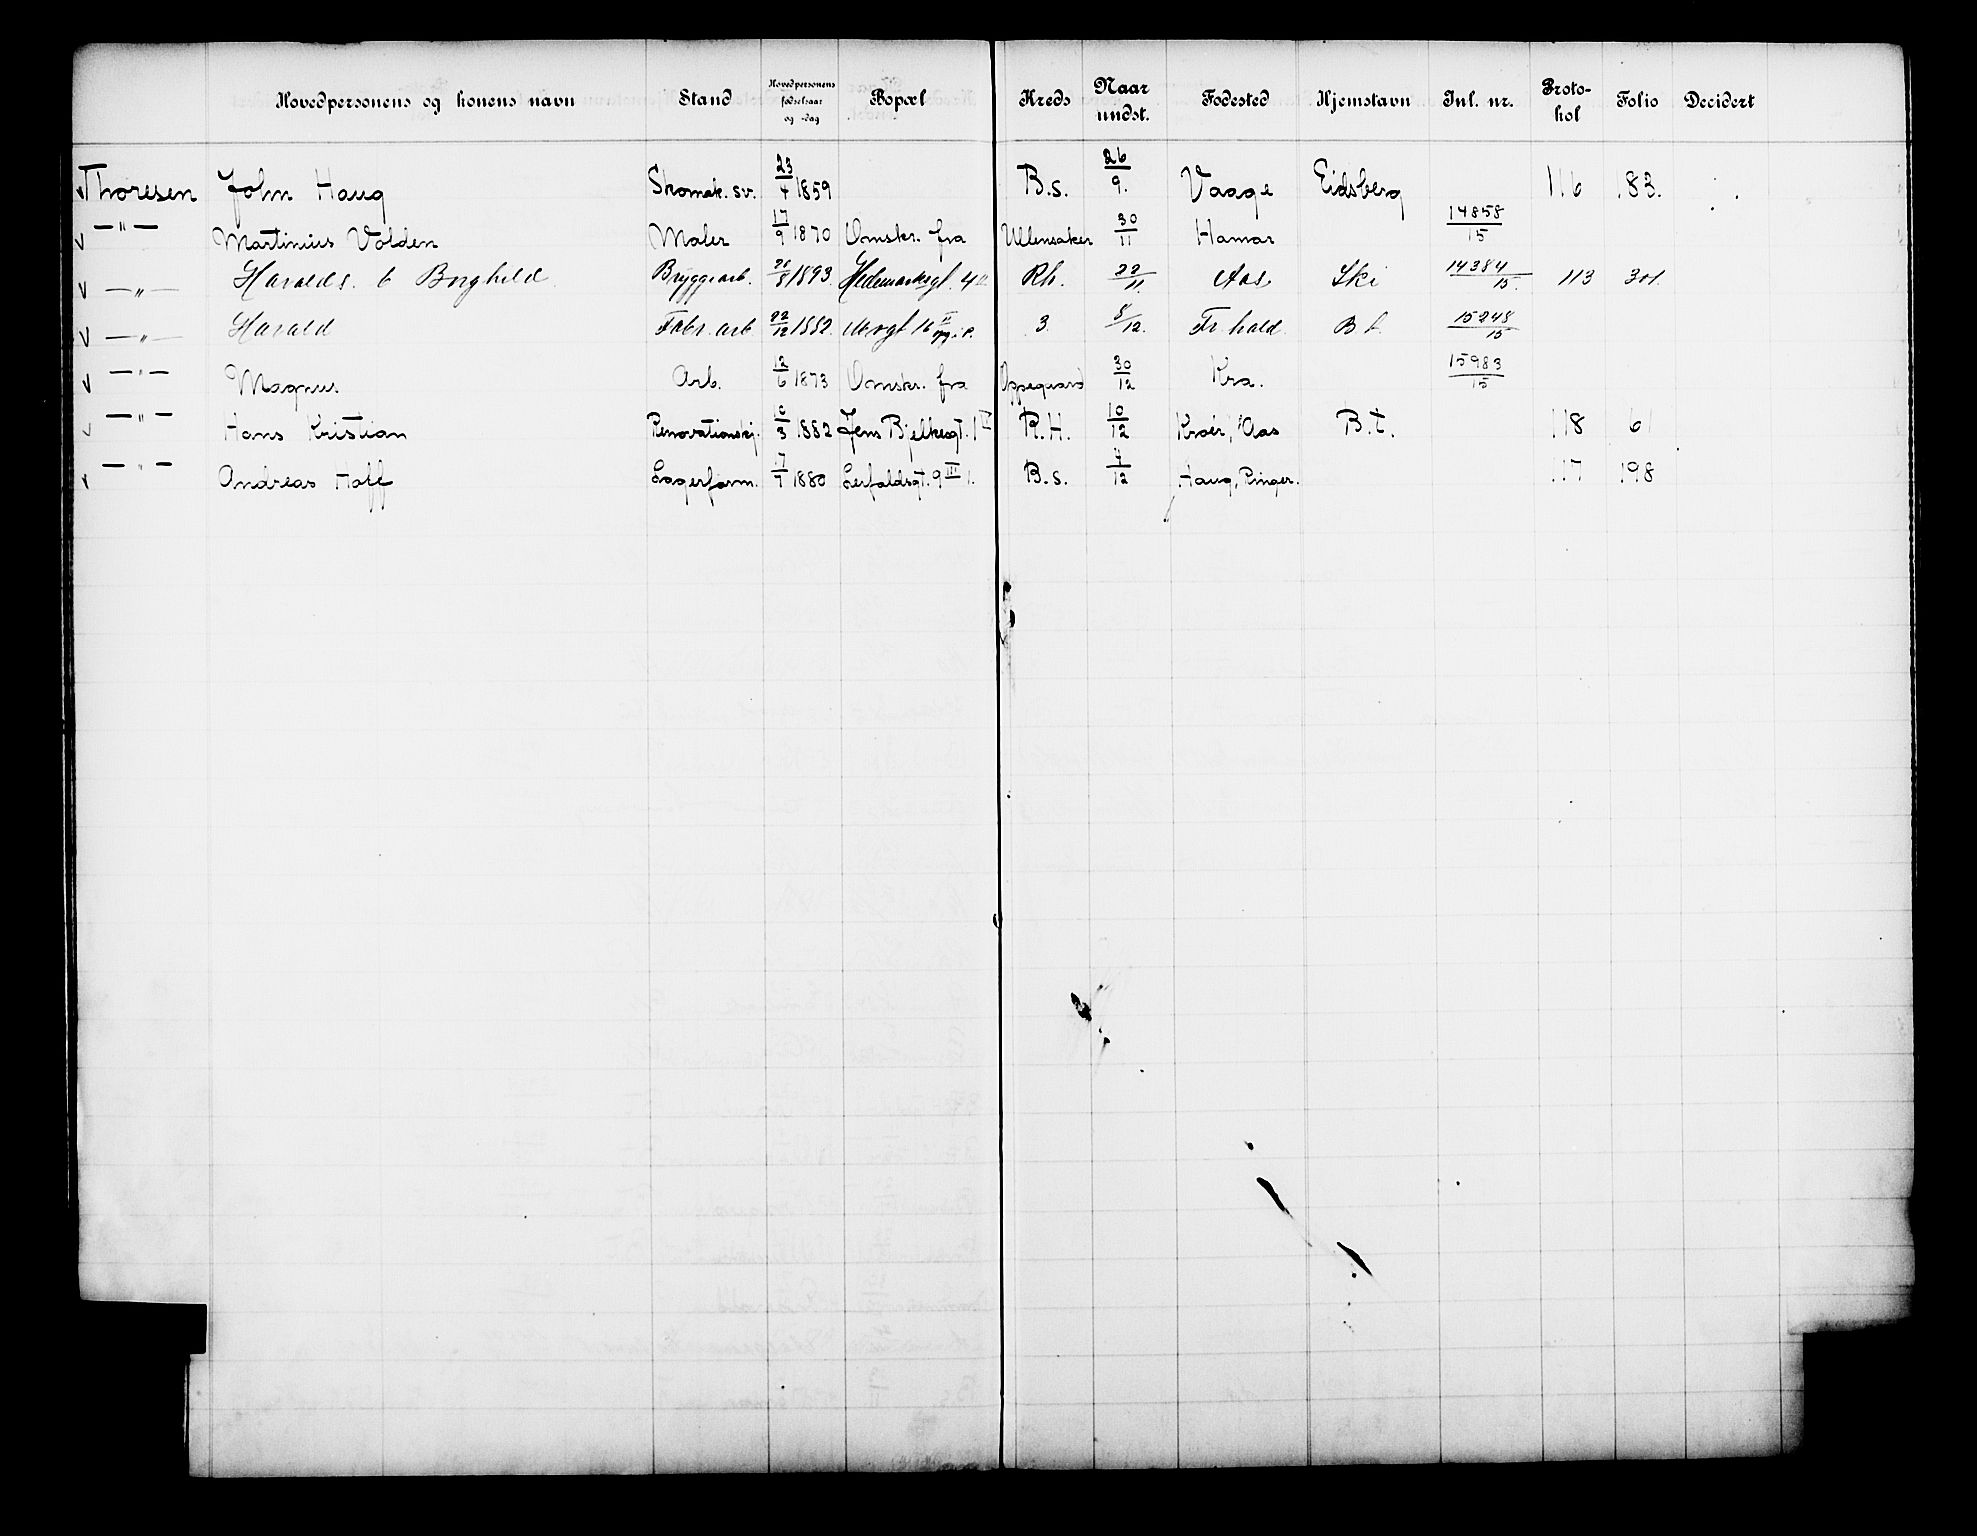 Hovedpersonens og konens navn Stand Hovedpersonens fødselsaar og -dag Bopæl Kreds Naar undst. Fødested Hjemstavn Inl. nr. Protokol Folio Decidert
Thoresen John Haug Skomak. sv. 23/4 1859 B.s. 26/9. Vaage Eidsberg 116 83.
—"— Martinius Volden Maler 17/9 1870 Omskr. fra Ullensaker 30/11 Hamar 14858/15
—"— Haralds. b Borghild Bryggearb. /8 1893. Hedemarksgt. 4 Rh. 22/11. Aas Ski 14384/15. 113 301
—"— Harald Fabr. arb 22/12 1882. 16 3. 8/12. Fr. hald. B t. 15248/15
—"— Magnus Arb. 12/6 1873 Omskr. fra Oppegaard 30/12 Kra. 15983/15
—"— Hans Kristian Renovationskj. 10/3 1882 Jens Bjelkesgt. 1 R.H. 10/12 Kroer, Aas B.t. 118 61
—"— Andreas Hoff Lagerform. 17/7 1880 Lerfaldsgt. 9 III 1. B.s. 7/12 Haug, Ringer. 117 198